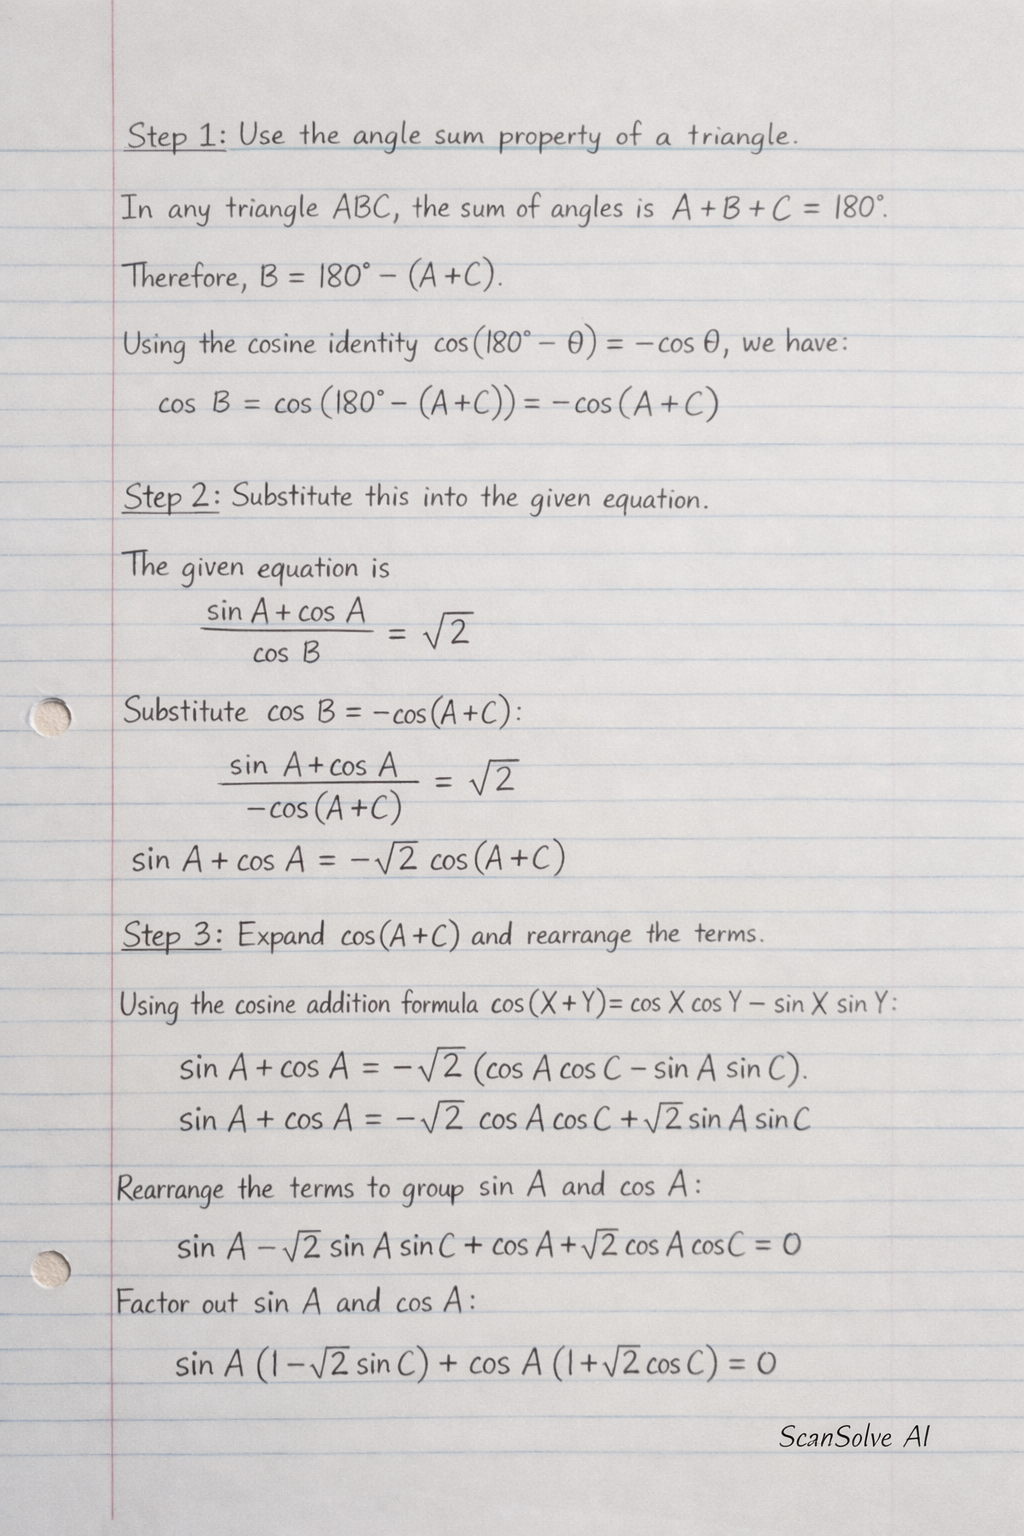 Step 1: Use the angle sum property of a triangle.
In any triangle ABC, the sum of angles is A + B + C = 180°.
Therefore, B = 180° − (A + C).
Using the cosine identity cos(180° − θ) = −cos θ, we have:
cos B = cos (180° − (A+C)) = −cos (A + C)
Step 2: Substitute this into the given equation.
The given equation is
sin A + cos A
cos B
= √2
Substitute cos B = −cos(A+C):
sin A + cos A
−cos (A+C)
= √2
sin A + cos A = −√2 cos (A+C)
Step 3: Expand cos(A+C) and rearrange the terms.
Using the cosine addition formula cos(X+Y) = cos X cos Y − sin X sin Y:
sin A + cos A = −√2 (cos A cos C − sin A sin C).
sin A + cos A = −√2 cos A cos C + √2 sin A sin C
Rearrange the terms to group sin A and cos A:
sin A − √2 sin A sin C + cos A + √2 cos A cos C = 0
Factor out sin A and cos A:
sin A (1 − √2 sin C) + cos A (1 + √2 cos C) = 0
ScanSolve AI